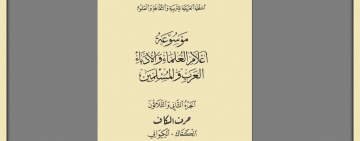 المنظمة العربية للتربية والثقافة والعلوم
موسوعة
أعلام العلماء والأدباء
العرب والمسلمين
الجزء الثاني والثلاثون
حرف الكاف
الكيواني